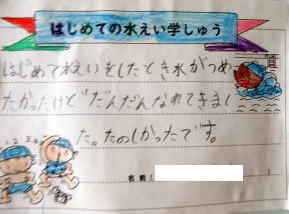 はじめての水えい学しゅう
はじめて水えいをしたとき水がつめ
たかったけどだんだんなれてきまし
た。たのしかったです。
1 2 3 4
名前（　　　）